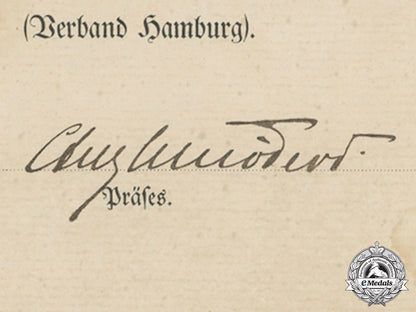 (Verband Hamburg).
Präses.
eMedals